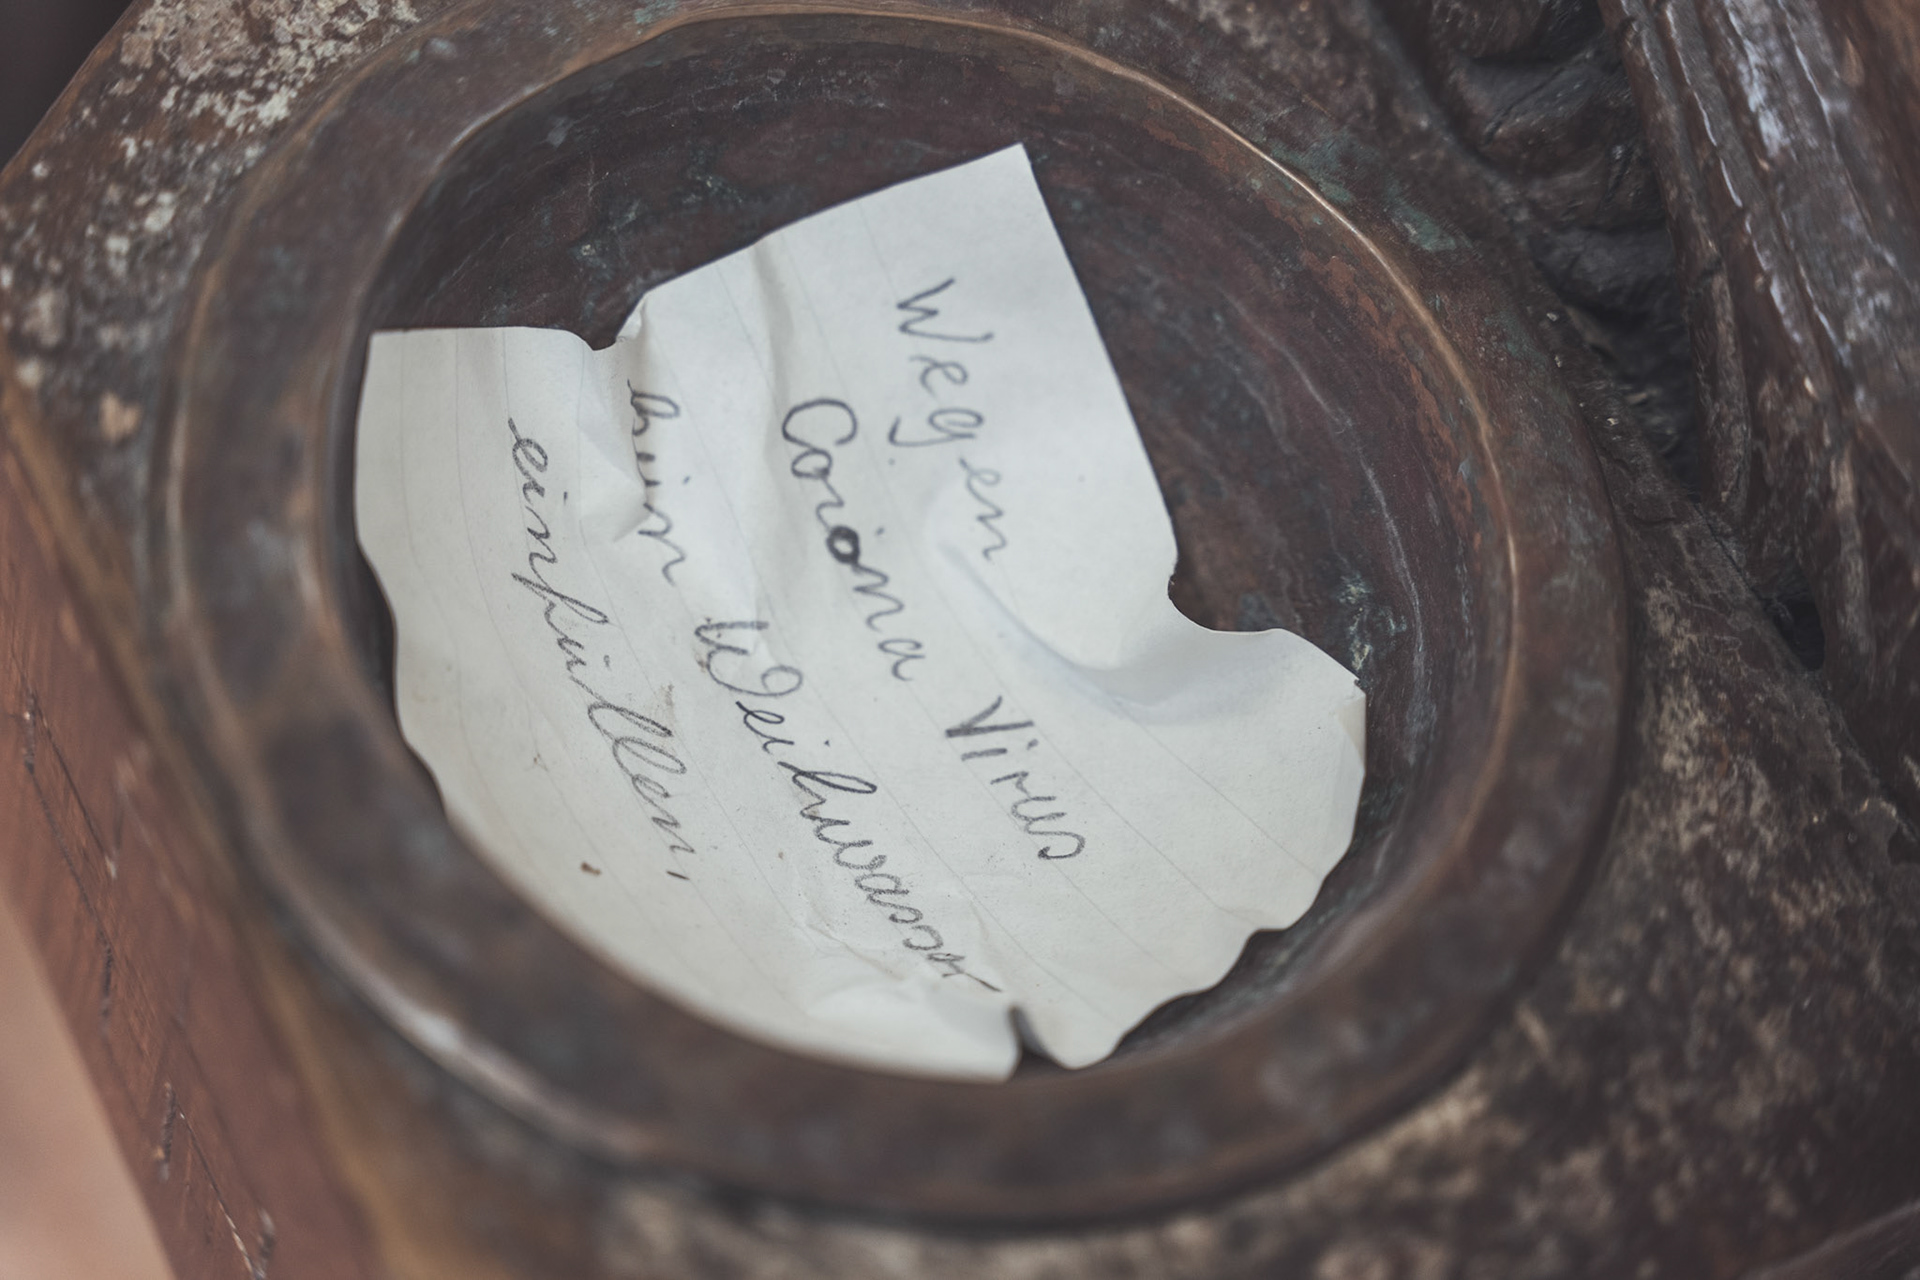 Wegen
Corona Virus
kein Weihwasser
einfüllen.